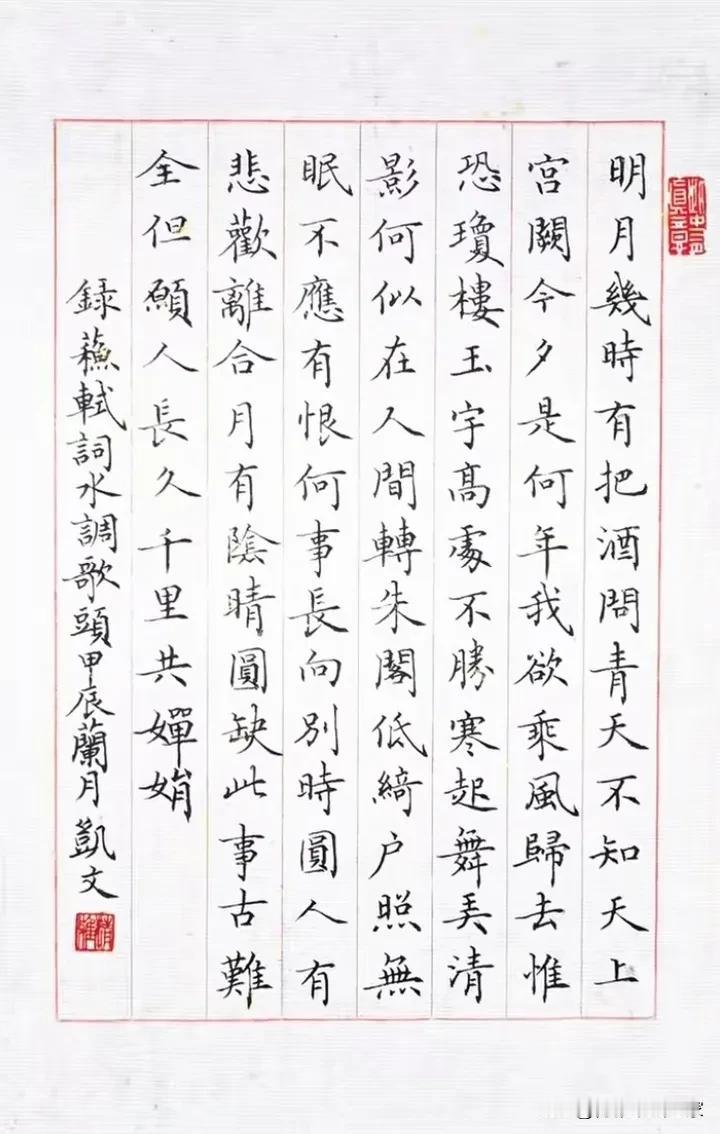 明月幾時有把酒問青天不知天上
宮闕今夕是何年我欲乘風歸去惟
恐瓊樓玉宇高處不勝寒起舞弄清
影何似在人間轉朱閣低綺户照無
眠不應有恨何事長向別時圓人有
悲歡離合月有陰晴圓缺此事古難
全但願人長久千里共嬋娟
録蘇軾詞水調歌頭甲辰蘭月凱文